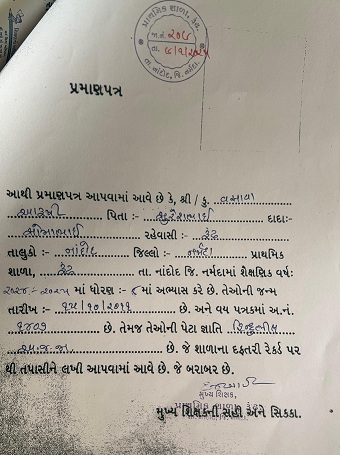 પ્રાથમિક શાળા,
જા.નં. ૨૦૬
તા.
તા. નાંદોદ, જિ. નર્મદા
પ્રમાણપત્ર
આથી પ્રમાણપત્ર આપવામાં આવે છે કે, શ્રી / કુ. વસાવા
પિતા :- સુરેશભાઈ દાદા:-
રહેવાસી :-
તાલુકો :- નાંદોદ જિલ્લો :- નર્મદા પ્રાથમિક
શાળા, તા. નાંદોદ જિ. નર્મદામાં શૈક્ષણિક વર્ષ:
૨૦૨૪ - ૨૦૨૫ માં ધોરણ :- માં અભ્યાસ કરે છે. તેઓની જન્મ
તારીખ :- ૧૫/૧૦/૨૦૧૧ છે. અને વય પત્રકમાં અ.નં.
છે. તેમજ તેઓની પેટા જ્ઞાતિ હિન્દુભીલ
અ.જ.જા. છે. જે શાળાના દફતરી રેકર્ડ પર
થી તપાસીને લખી આપવામાં આવે છે. જે બરાબર છે.
મુખ્ય શિક્ષક,
પ્રાથમિક શાળા
મુખ્ય શિક્ષકની સહી અને સિક્કા.